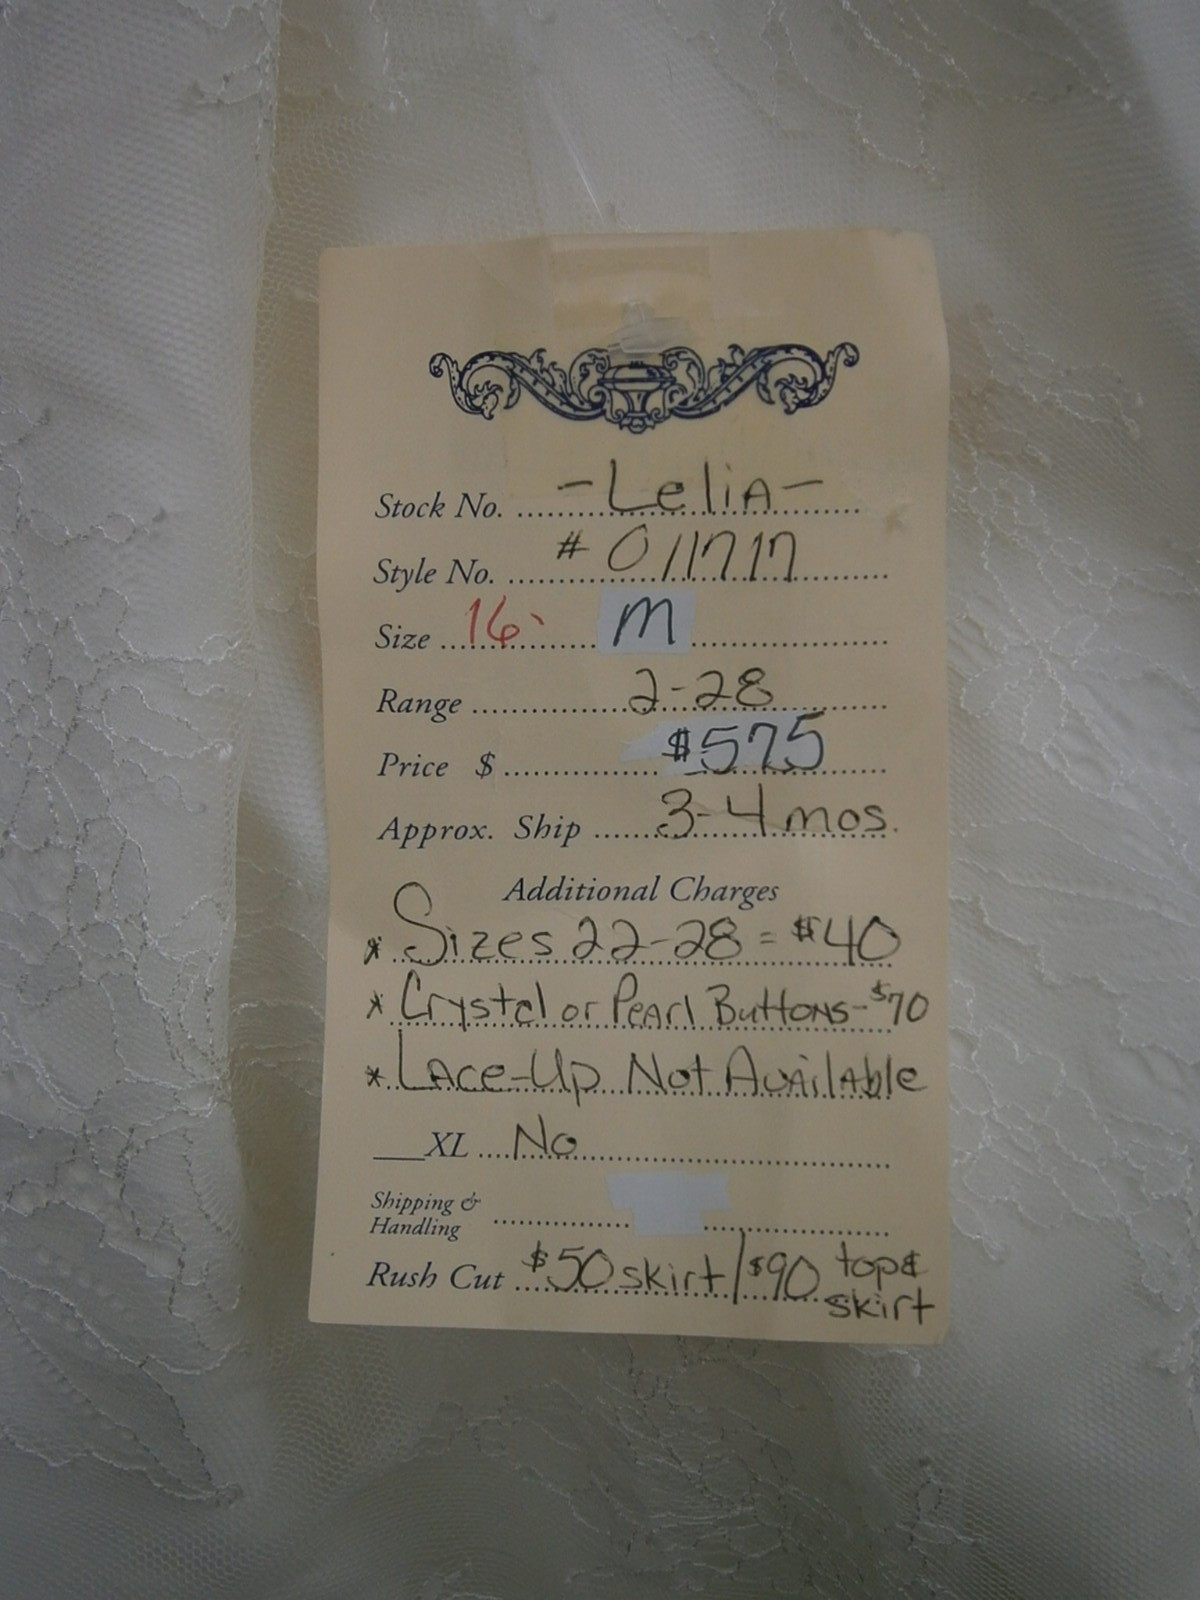 Stock No. -Lelia-
Style No. # 011717
Size 16 M
Range 2-28
Price $ $575
Approx. Ship 3-4 mos.
Additional Charges
* Sizes 22-28 = $40
* Crystal or Pearl Buttons - $70
* Lace-Up Not Available
___XL No
Shipping &
Handling
Rush Cut $50 skirt / $90 top &
skirt